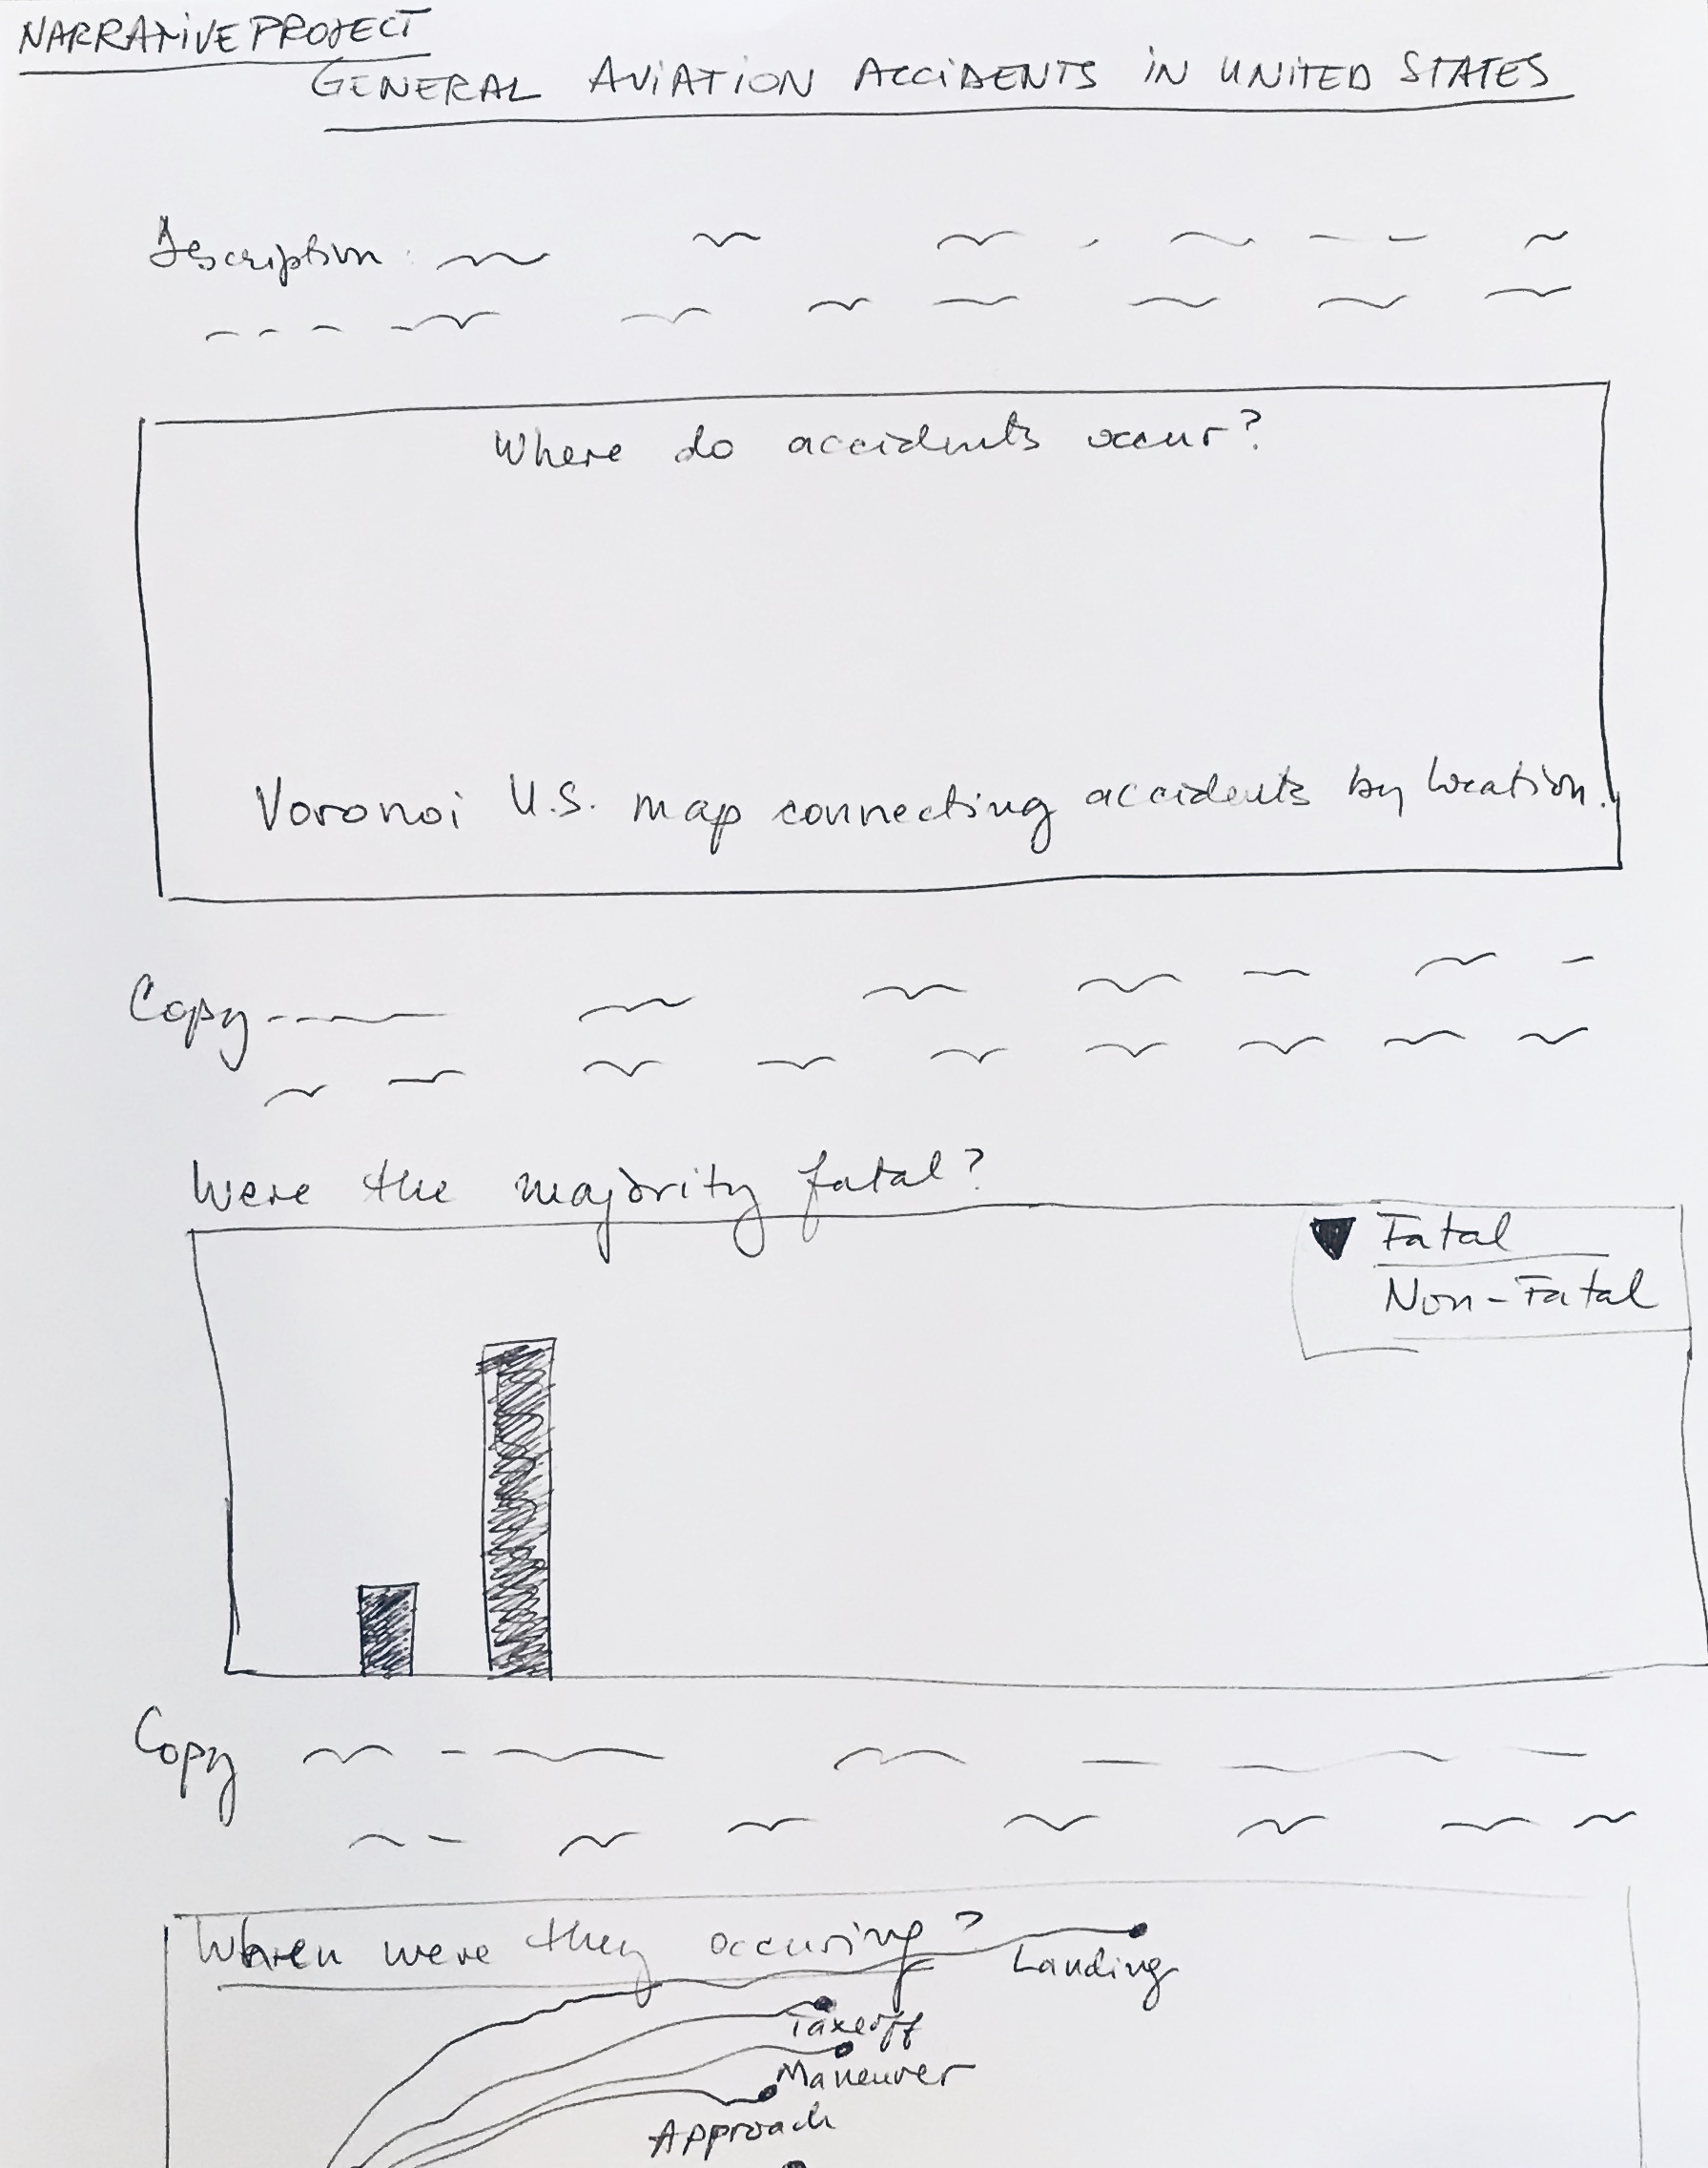 NARRATIVE PROJECT
GENERAL AVIATION ACCIDENTS IN UNITED STATES
Description:
Where do accidents occur?
Voronoi U.S. map connecting accidents by location.
Copy
Were the majority fatal?
Fatal
Non-Fatal
Copy
When were they occuring?
Landing
Takeoff
Maneuver
Approach